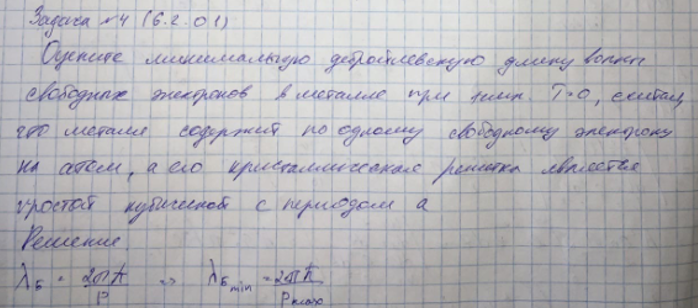 Задача №4 (6.2.01)
Оцените минимальную дебройлевскую длину волны
свободных электронов в металле при темп. T=0, считая,
что металл содержит по одному свободному электрону
на атом, а его кристаллическая решетка является
простой кубической с периодом a
Решение.
λ_Б = 2πħ/p => λ_Б min = 2πħ/p max